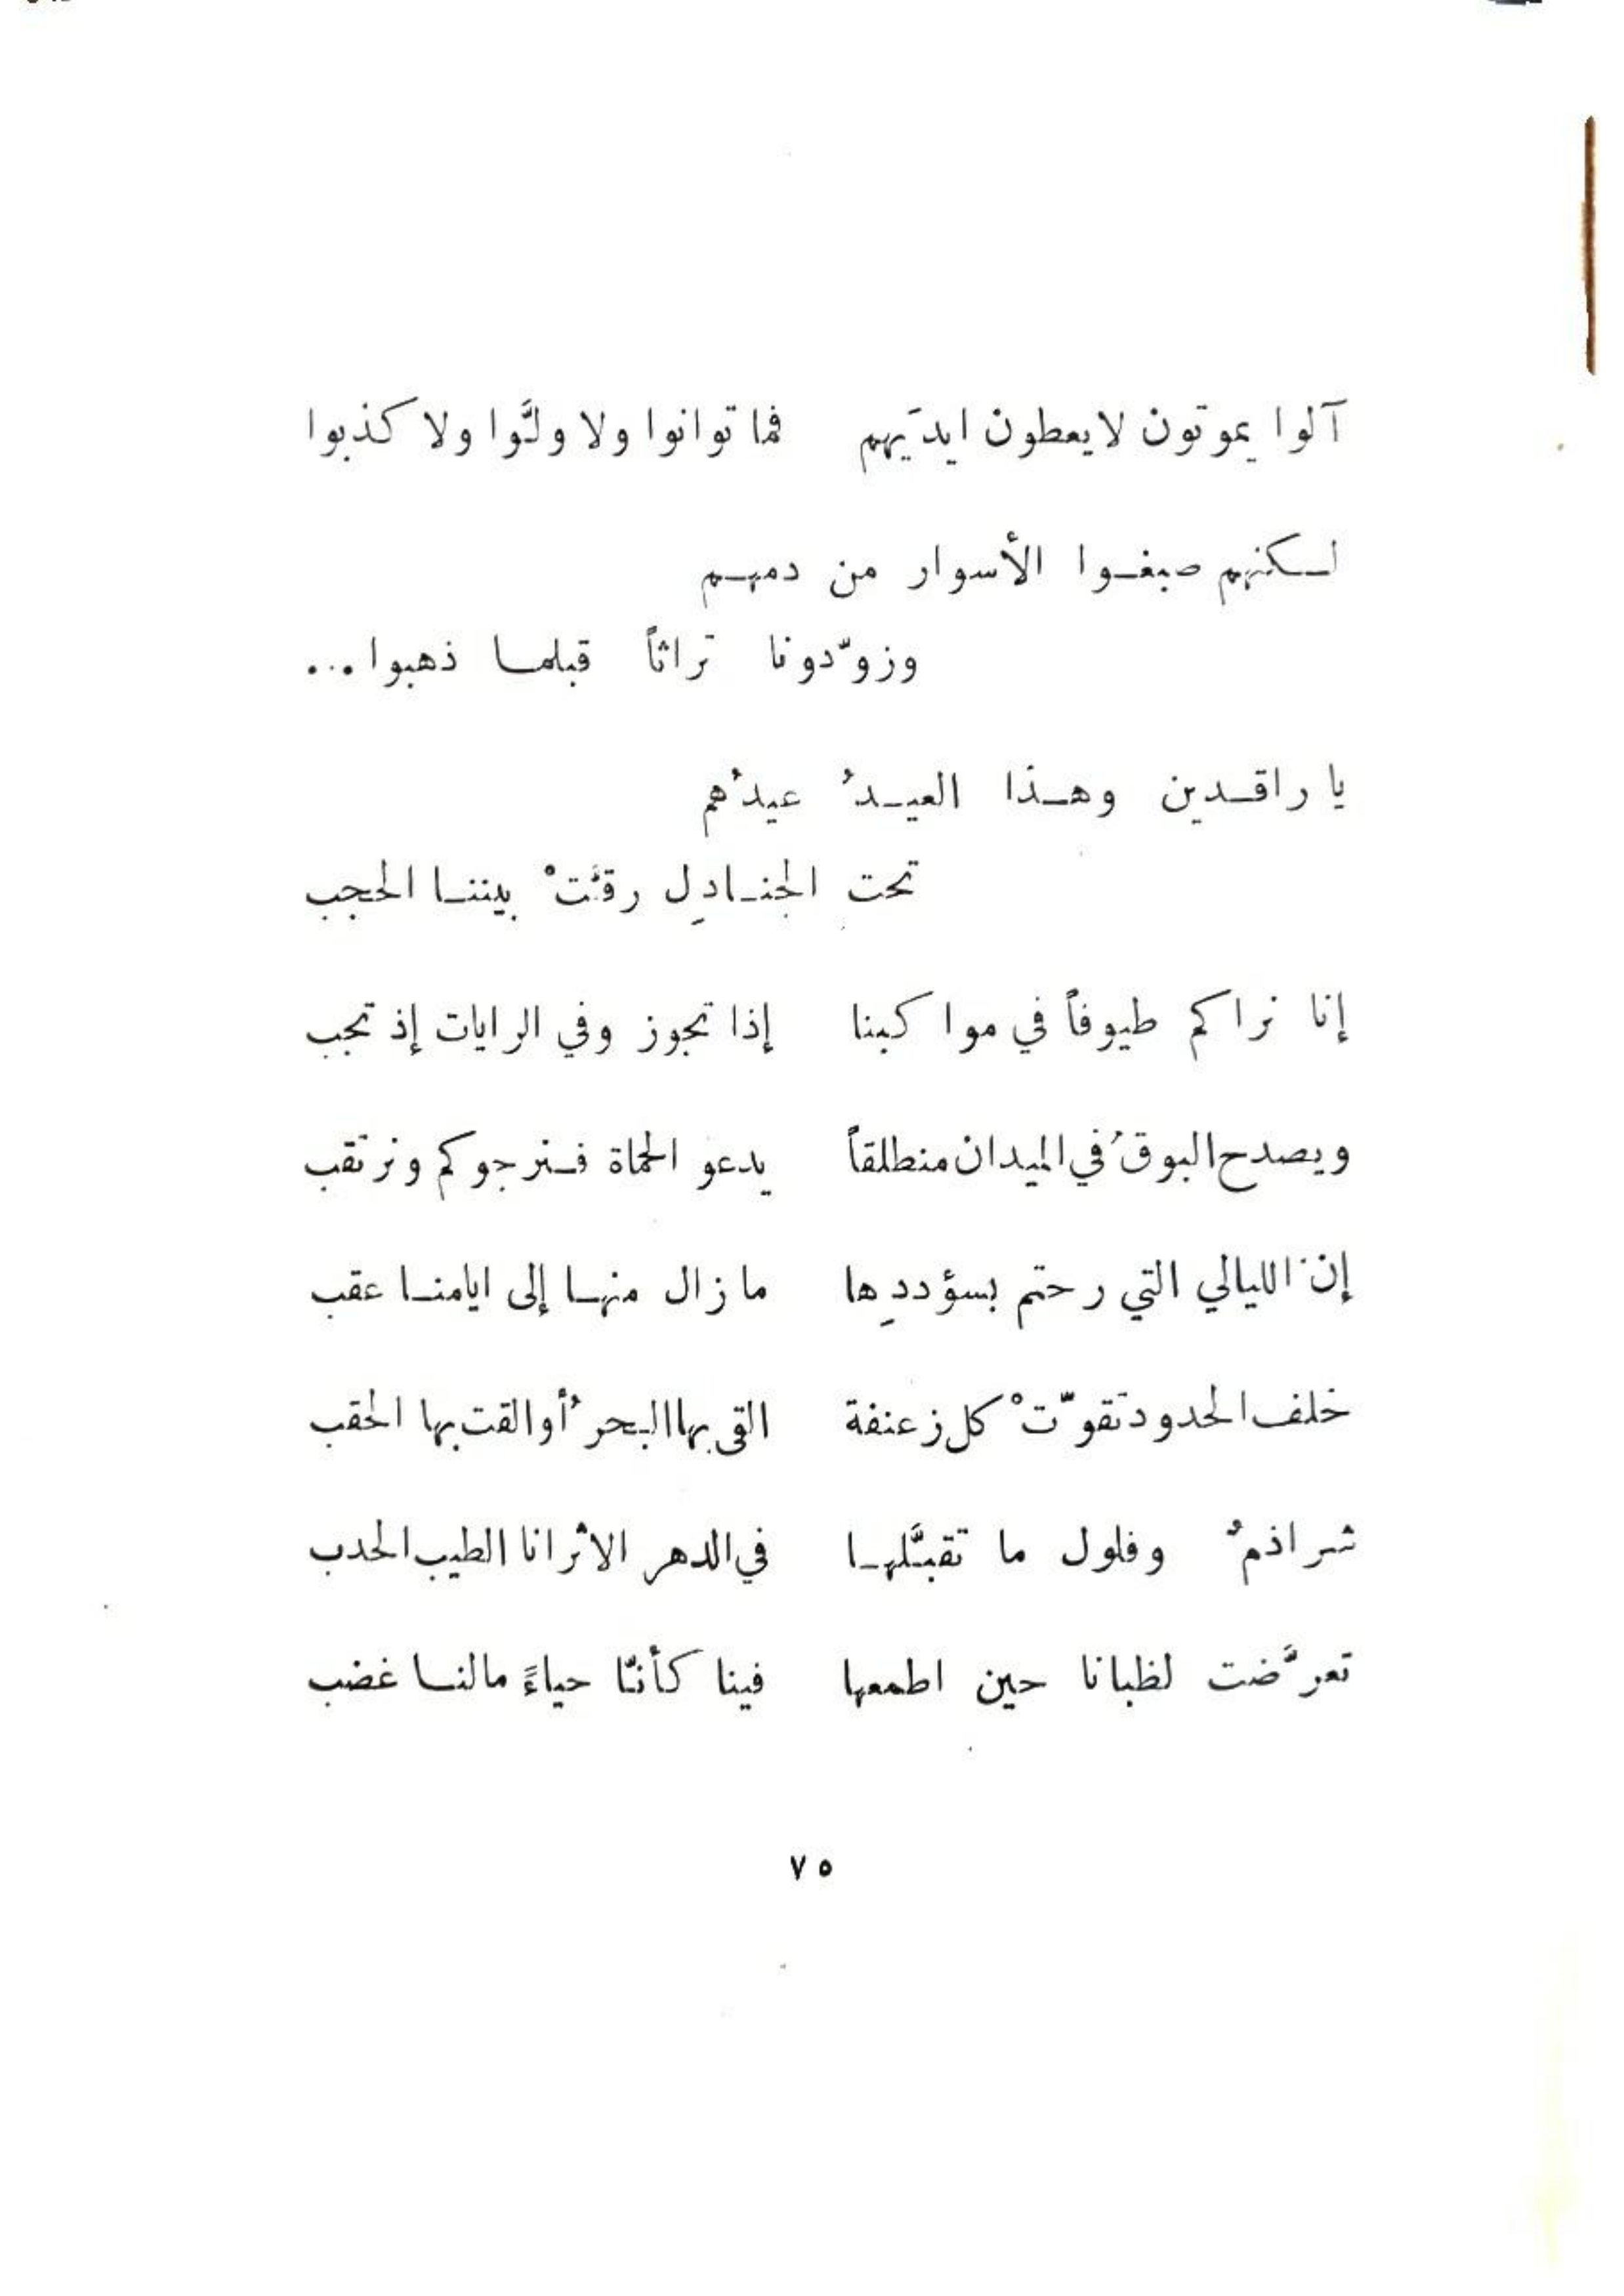 آلوا يموتون لا يعطون ايدَيهم فما توانوا ولا ولَّوا ولا كذبوا
لـكنهم صبغـوا الأسوار من دمهـم
وزوّدونا تراثاً قبلمـا ذهبوا ...
يا راقـدين وهـذا العيـدُ عيدُهم
تحت الجنـادِل رقّتْ بيننـا الحجب
إنا نراكم طيوفاً في مواكبنا إذا تجوز وفي الرايات إذ تجب
ويصدح البوقُ في الميدان منطلقاً يدعو الحماة فـنرجوكم ونرتقب
إن الليالي التي رحتم بسؤددِها ما زال منهـا إلى ايامنـا عقب
خلف الحدود تقوّتْ كل زعنفة القى بها البحرُ أو القت بها الحقب
شراذمٌ وفلول ما تقبَّلهـا في الدهر الا ثرانا الطيب الحدب
تعرَّضت لظبانا حين اطمعها فينا كأنّا حياءً ما لنـا غضب
٧٥